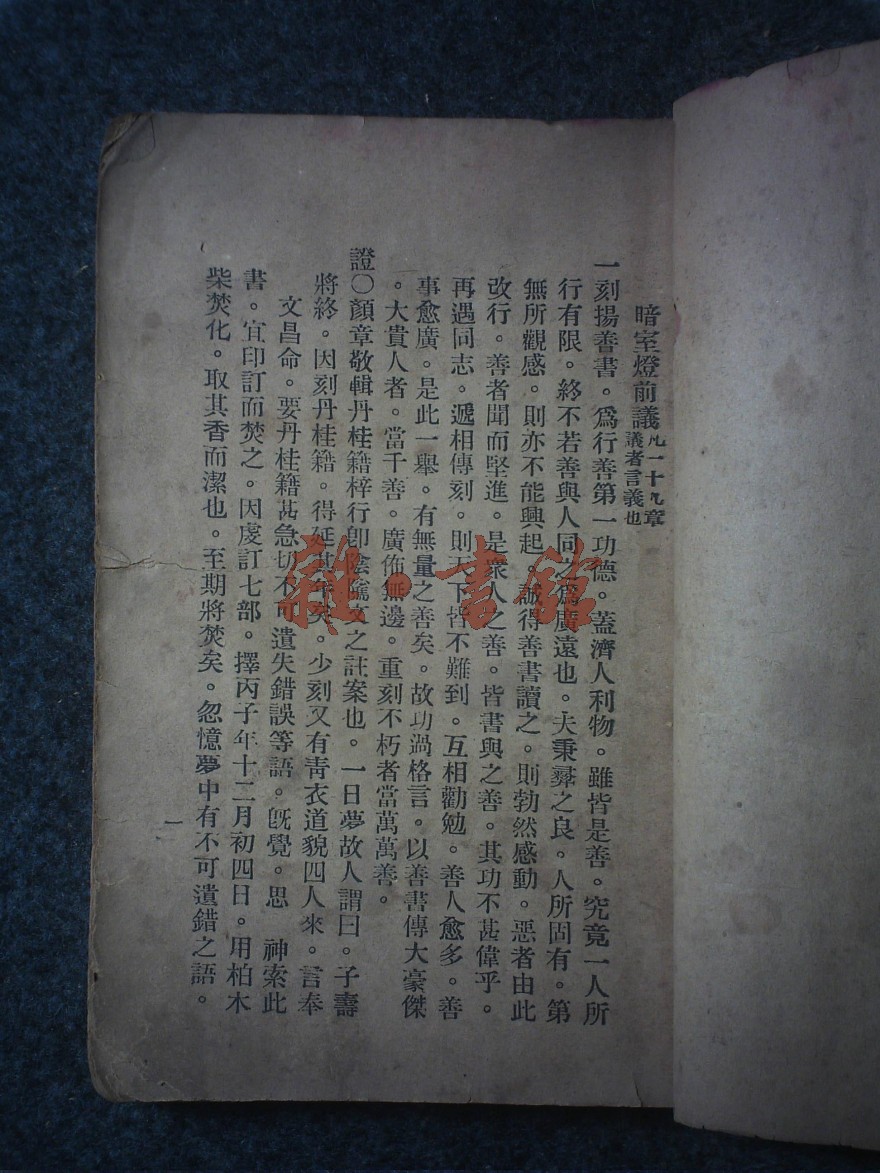 暗室燈前議凡一十九章
議者言義也
一刻揚善書。爲行善第一功德。蓋濟人利物。雖皆是善。究竟一人所
行有限。終不若善與人同之爲廣遠也。夫秉彞之良。人所固有。第
無所觀感。則亦不能興起。誠得善書讀之。則勃然感動。惡者由此
改行。善者聞而堅進。是衆人之善。皆書與之善。其功不甚偉乎。
再遇同志。遞相傳刻。則天下皆不難到。互相勸勉。善人愈多。善
事愈廣。是此一舉。有無量之善矣。故功過格言。以善書傳大豪傑
。大貴人者。當千善。廣佈無邊。重刻不朽者當萬萬善。
證〇顏章敬輯丹桂籍梓行卽陰隲文之註案也。一日夢故人謂曰。子壽
將終。因刻丹桂籍。得延其年矣。少刻又有靑衣道貌四人來。言奉
文昌命。要丹桂籍甚急切不可遺失錯誤等語。旣覺。思 神索此
書。宜印訂而焚之。因虔訂七部。擇丙子年十二月初四日。用柏木
柴焚化。取其香而潔也。至期將焚矣。忽憶夢中有不可遺錯之語。
一
雜·書館